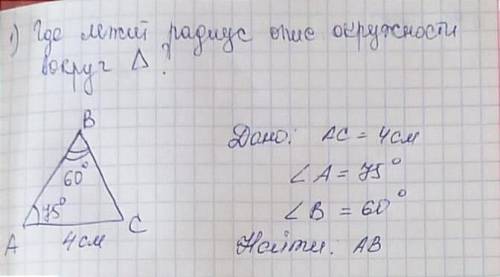 1) Где лежит радиус опис окружности
вокруг Δ?
B
60°
75°
A
C
4см
Дано: AC = 4см
∠A = 75°
∠B = 60°
Найти: AB